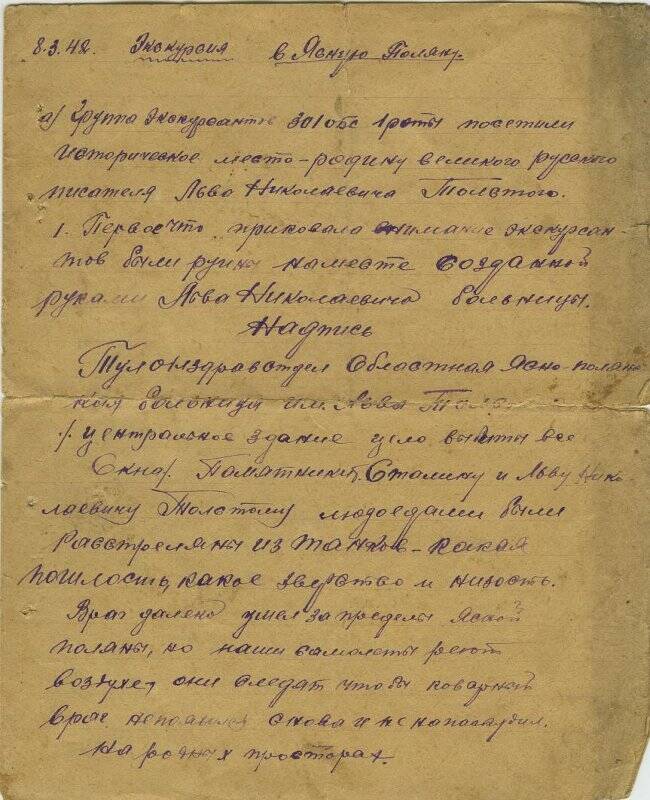 8.3.42. Экскурсия в Ясную Поляну.
а) Группа экскурсантов 301 обс 1 роты посетили
историческое место-родину великого русского
писателя Льва Николаевича Толстого.
1. Первое что приковала внимание экскурсан-
тов были руины на месте созданной
руками Льва Николаевича больницы.
Надпись
Тулоблздравотдел Областная Ясно-полянс
кая больница им. Льва Толс
/. центральное здание цело выбиты все
Окна/. Памятники Сталину и Льву Нико-
лаевичу Толстому людоедами были
Расстреляны из танков - какая
пошлость, какое зверство и низость.
Враг далеко ушел за пределы Ясной
поляны, но наши самолеты реют
воздухе, они следат чтобы коварной
враг не поаился снова и не напоскудил.
На родных просторах.